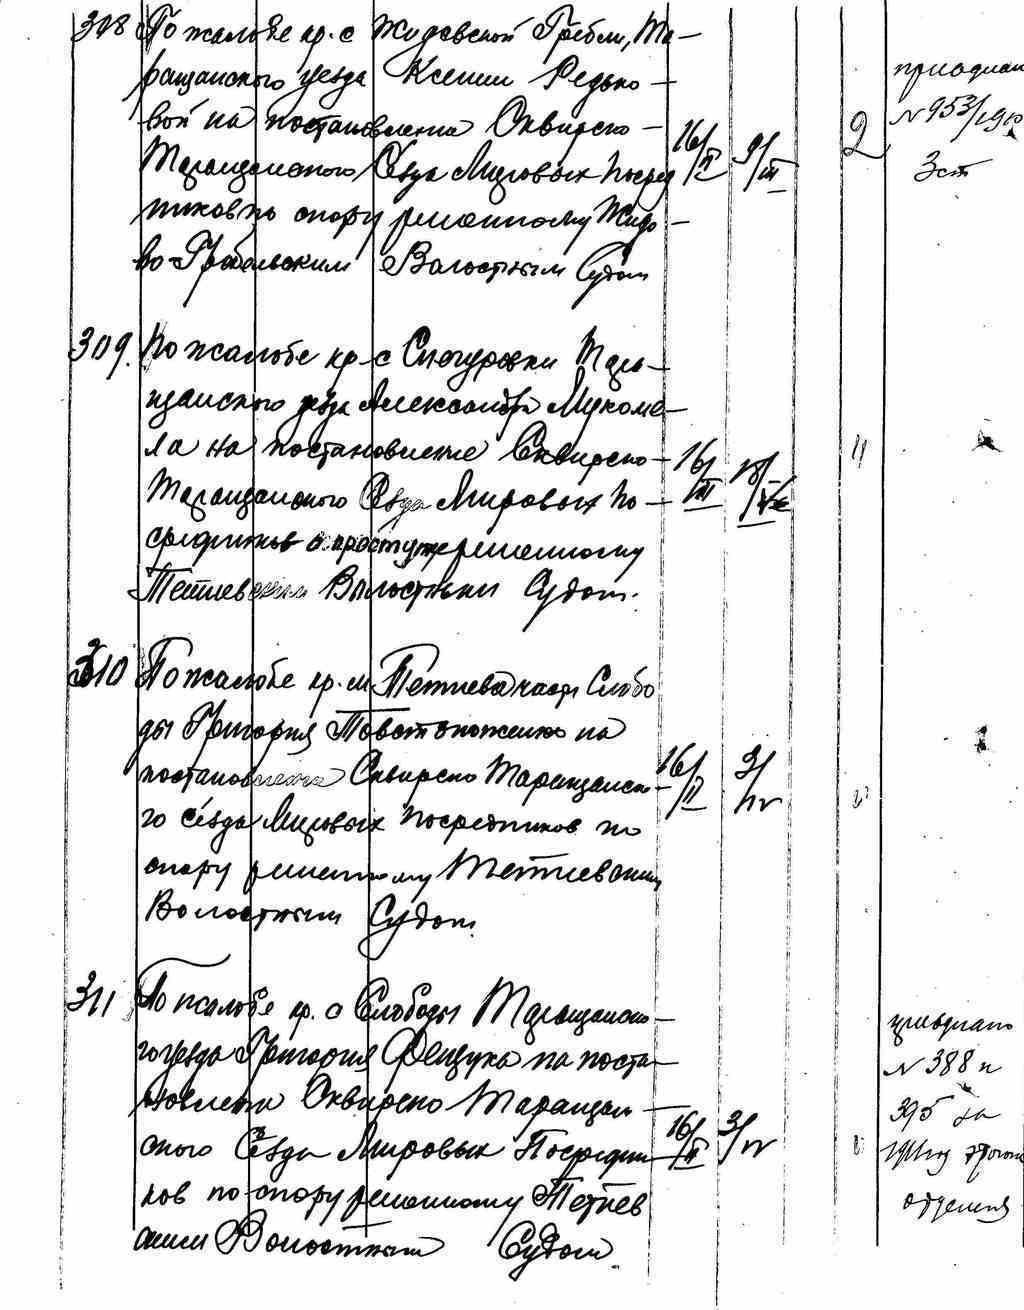 308 По жалобе кр. с Жидовской Гребли, Та-
ращанского уезда Ксении Редько-
вой на постановление Сквирско-
Таращанского Съезда Мировых Посред
ников по спору решенному Жидо-
во-Гребельским Волостным Судом
16/II 9/III 2
приобщен
N 953/1910
3 ст
309. По жалобе кр с Снегуровки Тара-
щанского уезда Александра Мукоме-
ла на постановление Сквирско-
Таращанского Съезда Мировых По-
средников о проступке решенному
Тетиевским Волостным Судом.
16/III
310 По жалобе кр. м. Тетиева части Слобо
ды Григория Товстоноженко на
постановление Сквирско Таращанско-
го Съезда Мировых Посредников по
спору решенному Тетиевским
Волостным Судом.
16/II 3/IV
311 По жалобе кр. с Слободы Таращанско-
го уезда Григория Фещука на поста-
новление Сквирско Таращан-
ского Съезда Мировых Посредни-
ков по спору решенному Тетиев
ским Волостным Судом.
16/II 3/IV
приобщено
N 388 и
395 за
отделения